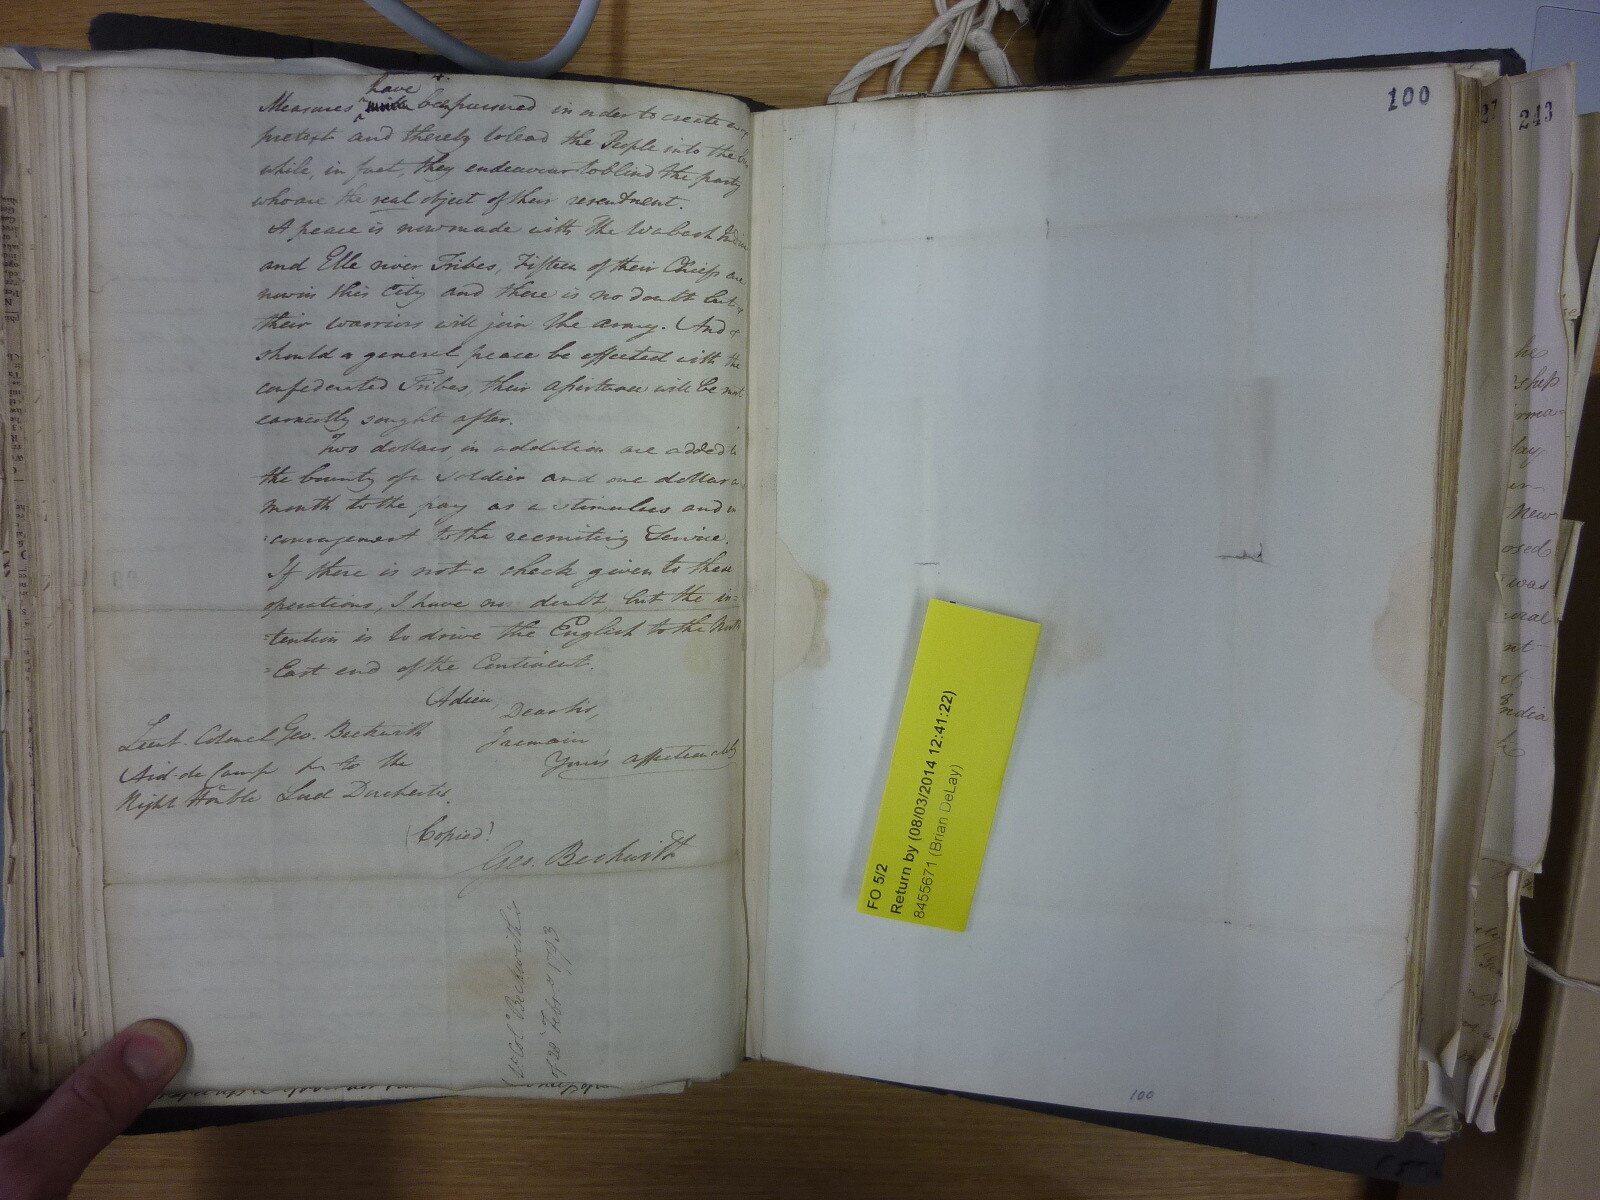 have
Measures been pursued in order to create every
pretext and thereby to lead the People into the
while, in fact, they endeavour to blind the party
who are the real object of their resentment.
A peace is now made with the Wabash
and Elle river Tribes, Fifteen of their Chiefs are
now in this City and there is no doubt but
their warriors will join the army. And
should a general peace be effected with the
confederated Tribes, their assistance will be
earnestly sought after.
Two dollars in addition are added to
the bounty of a soldier and one dollar a
month to the pay as a stimulus and in
=couragement to the recruiting Service.
If there is not a check given to these
operations, I have no doubt, but the in=
=tention is to drive the English to the North
=East end of the Continent.
Adieu,
Dear Sir,
I remain
Yours affectionately
Lieut. Colonel Geo. Beckwith
Aid-de Camp to the
Right Honble Lord Dorchester.
(Copied)
Geo. Beckwith
Lt. Col. Beckwith's
of 28 Febry. 1793
100
27
243
he
ship
orma=
lay
en
New
osed
was
ural
nt
ndia
FO 5/2
Return by (08/03/2014 12:41:22)
8455671 (Brian DeLay)
100